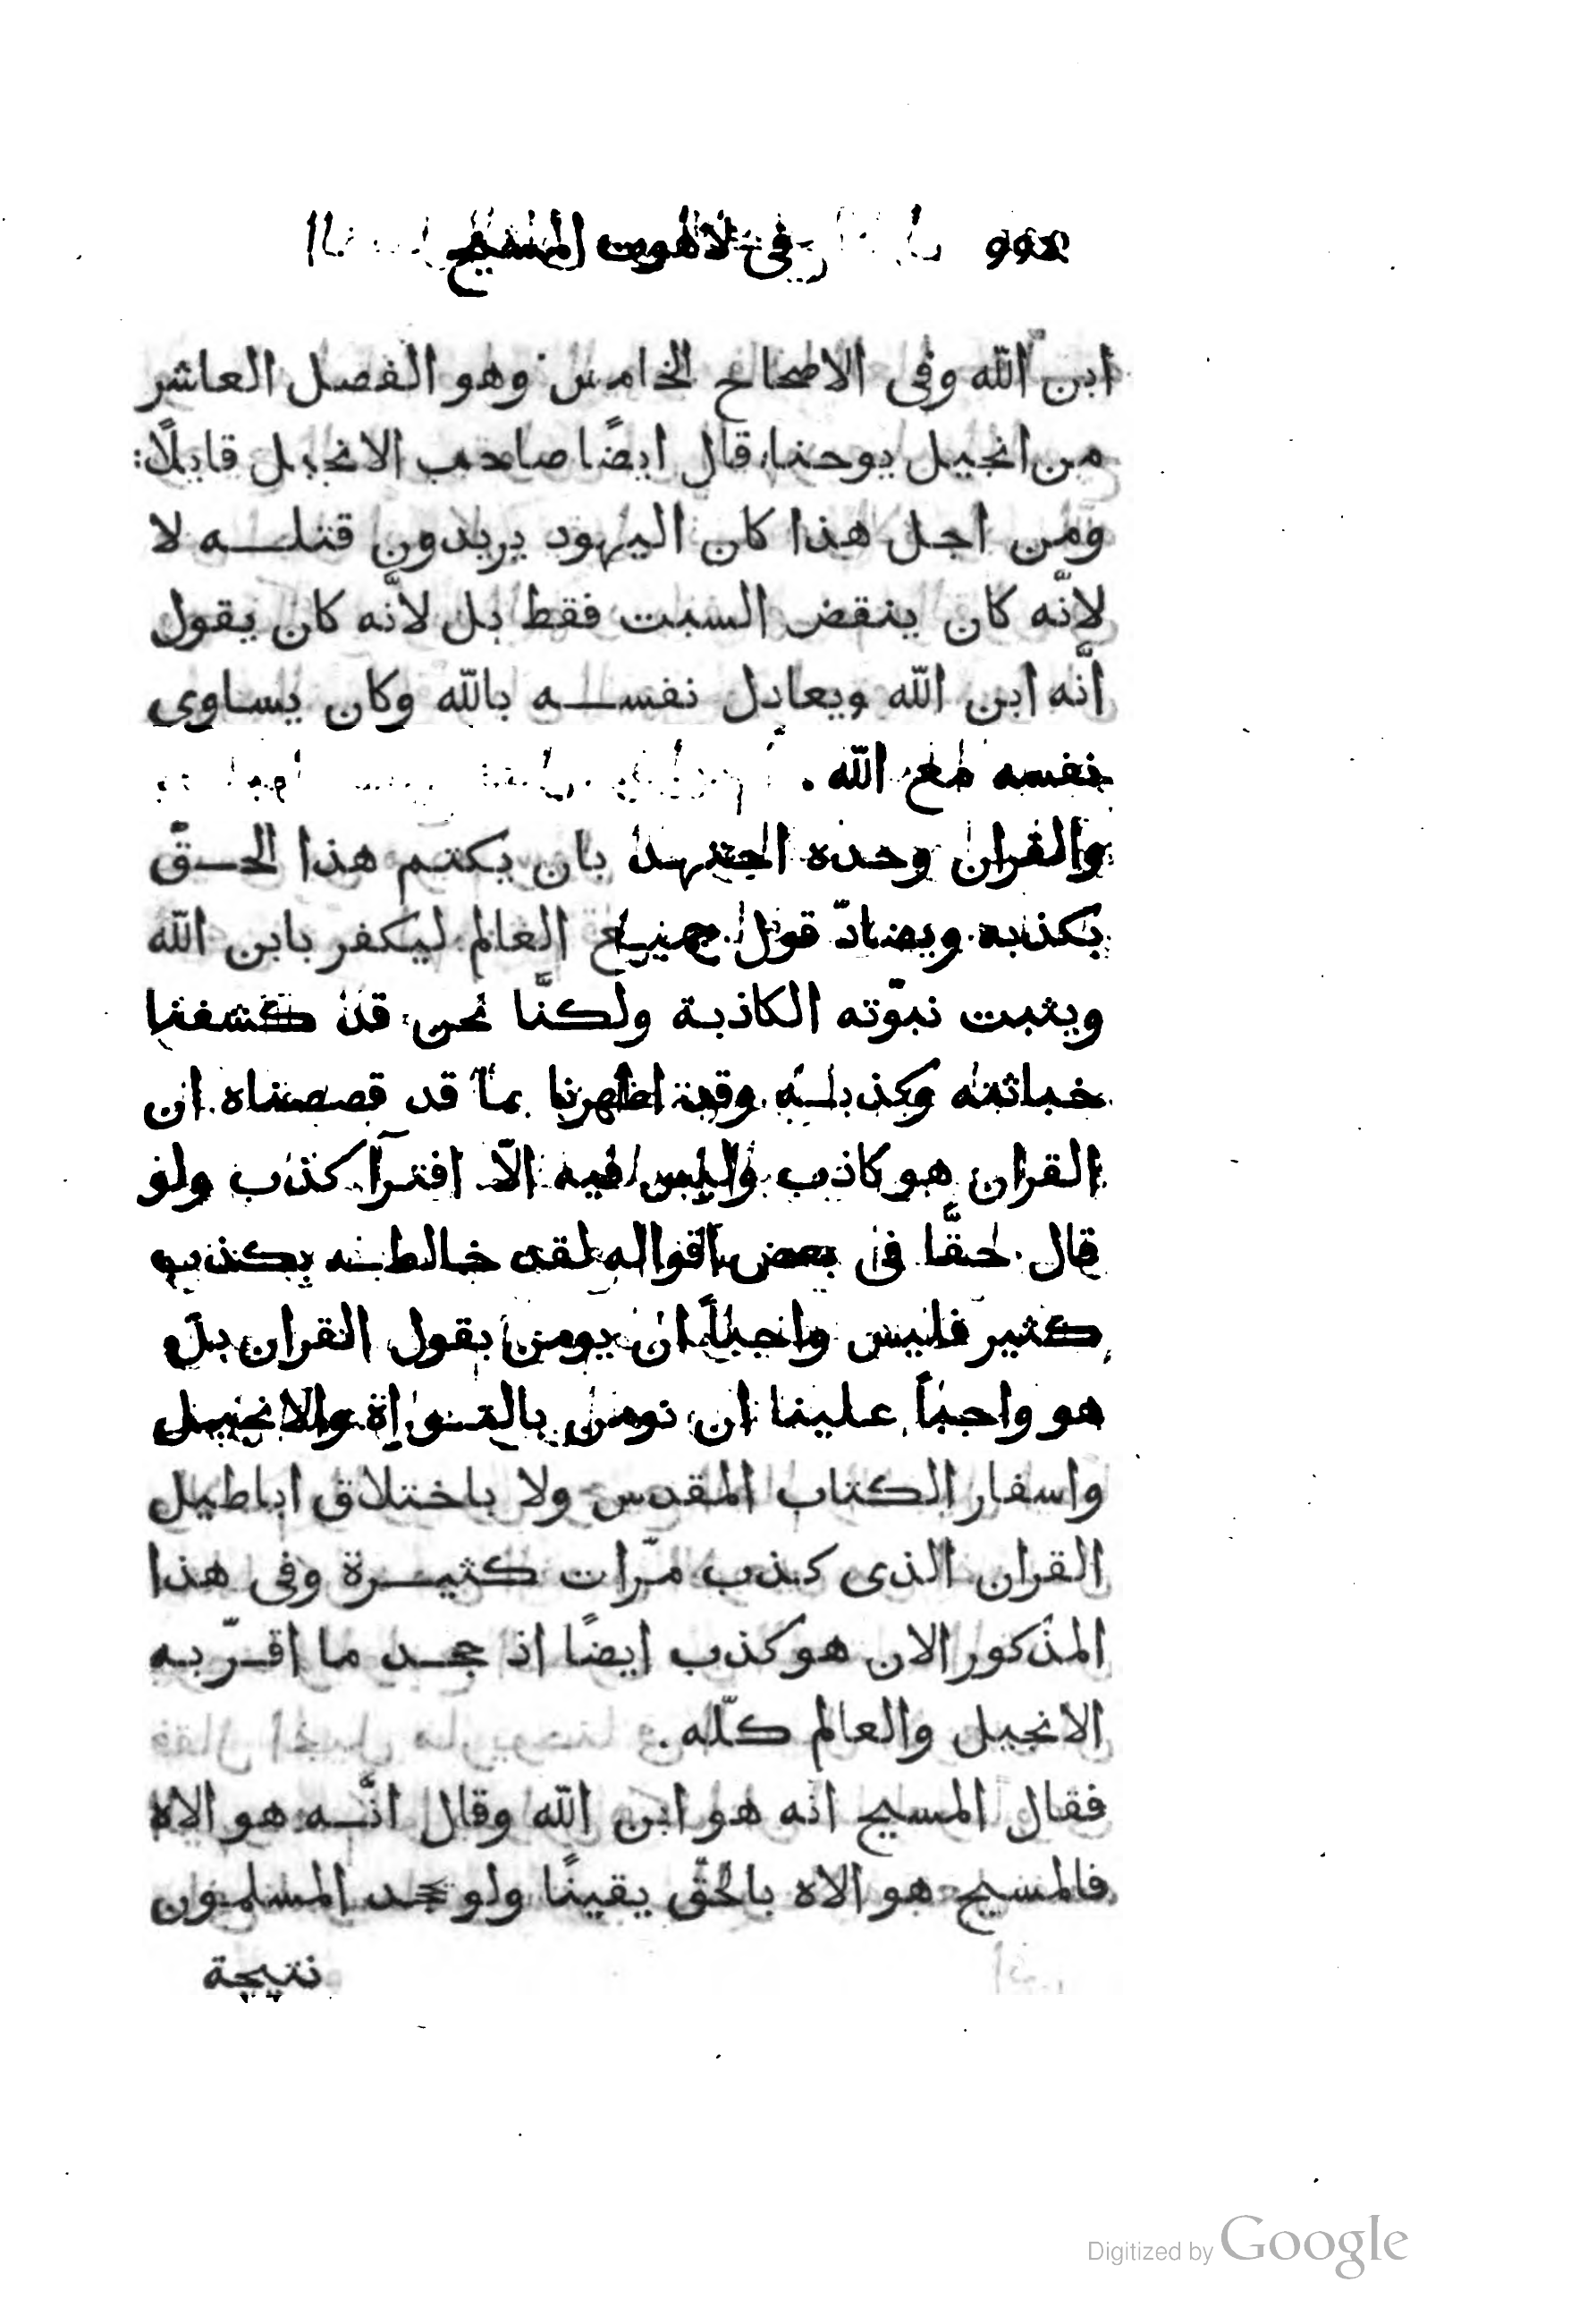 في لاهوت المسيح
ابن اللّه وفى الاصحاح الخامس وهو الفصل العاشر
من انجيل يوحنا قال ايضًا صاحب الانجيل قايلًا:
ومن اجل هذا كان اليهود يريدون قتلـــه لا
لانّه كان ينقض السبت فقط بل لانّه كان يقول
انّه ابن اللّه ويعادل نفســـه باللّه وكان يساوى
نفسه مع اللّه .
والقران وحده اجتهد بان يكتم هذا الحــقّ
بكذبه ويضادّ قول جميع العالم ليكفر بابن اللّه
ويثبت نبوّته الكاذبة ولكنّا نحن قد كشفنا
خباثته وكذبــه وقد اظهرنا بما قد قصصناه ان
القران هو كاذب وليس فيه الّا افترآ كذب ولو
قال حقًّا فى بعض اقواله لقد خالطــه بكذب
كثير فليس واجباً ان يومن بقول القران بل
هو واجباً علينا ان نومن بالتــوراة والانجيل
واسفار الكتاب المقدس ولا باختلاق اباطيل
القران الذى كذب مرّات كثيــرة وفى هذا
المذكور الان هو كذب ايضًا اذ جحــد ما اقــرّ به
الانجيل والعالم كلّه .
فقال المسيح انه هو ابن اللّه وقال انّــه هو الاه
فالمسيح هو الاه بالحقّ يقينًا ولو جحد المسلمون
نتيجة
Digitized by Google